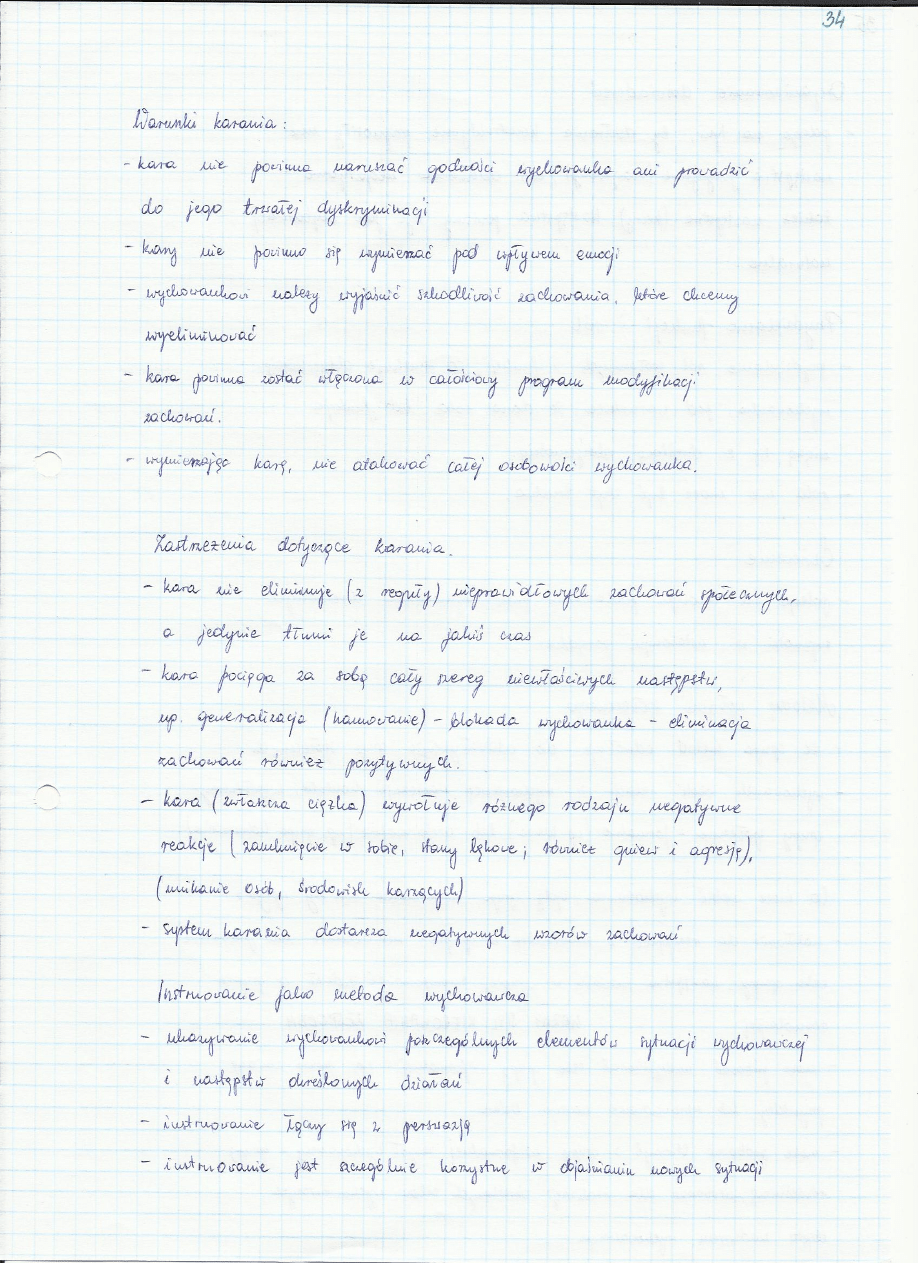 34
Warunki karania:
- kara nie powinna naruszać godności wychowanka ani prowadzić
do jego trwałej dyskryminacji
- kary nie powinno się wymierzać pod wpływem emocji
- wychowankowi należy wyjaśnić szkodliwość zachowania, które chcemy
wyeliminować
- kara powinna zostać włączona w całościowy program modyfikacji
zachowań.
- wymierzając karę, nie atakować całej osobowości wychowanka.
Zastrzeżenia dotyczące karania.
- kara nie eliminuje (z reguły) nieprawidłowych zachowań społecznych,
a jedynie tłumi je na jakiś czas
- kara pociąga za sobą cały szereg niewłaściwych następstw,
np. generalizacja (hamowanie) - blokada wychowanka - eliminacja
zachowań również pozytywnych.
- kara (zwłaszcza ciężka) wywołuje różnego rodzaju negatywne
reakcje (zamknięcie w sobie, stany lękowe; również gniew i agresję),
(unikanie osób, środowisk karzących)
- system karania dostarcza negatywnych wzorów zachowań
Instruowanie jako metoda wychowawcza
- ukazywanie wychowankowi poszczególnych elementów sytuacji wychowawczej
i następstw określonych działań
- instruowanie łączy się z perswazją
- instruowanie jest szczególnie korzystne w objaśnianiu nowych sytuacji